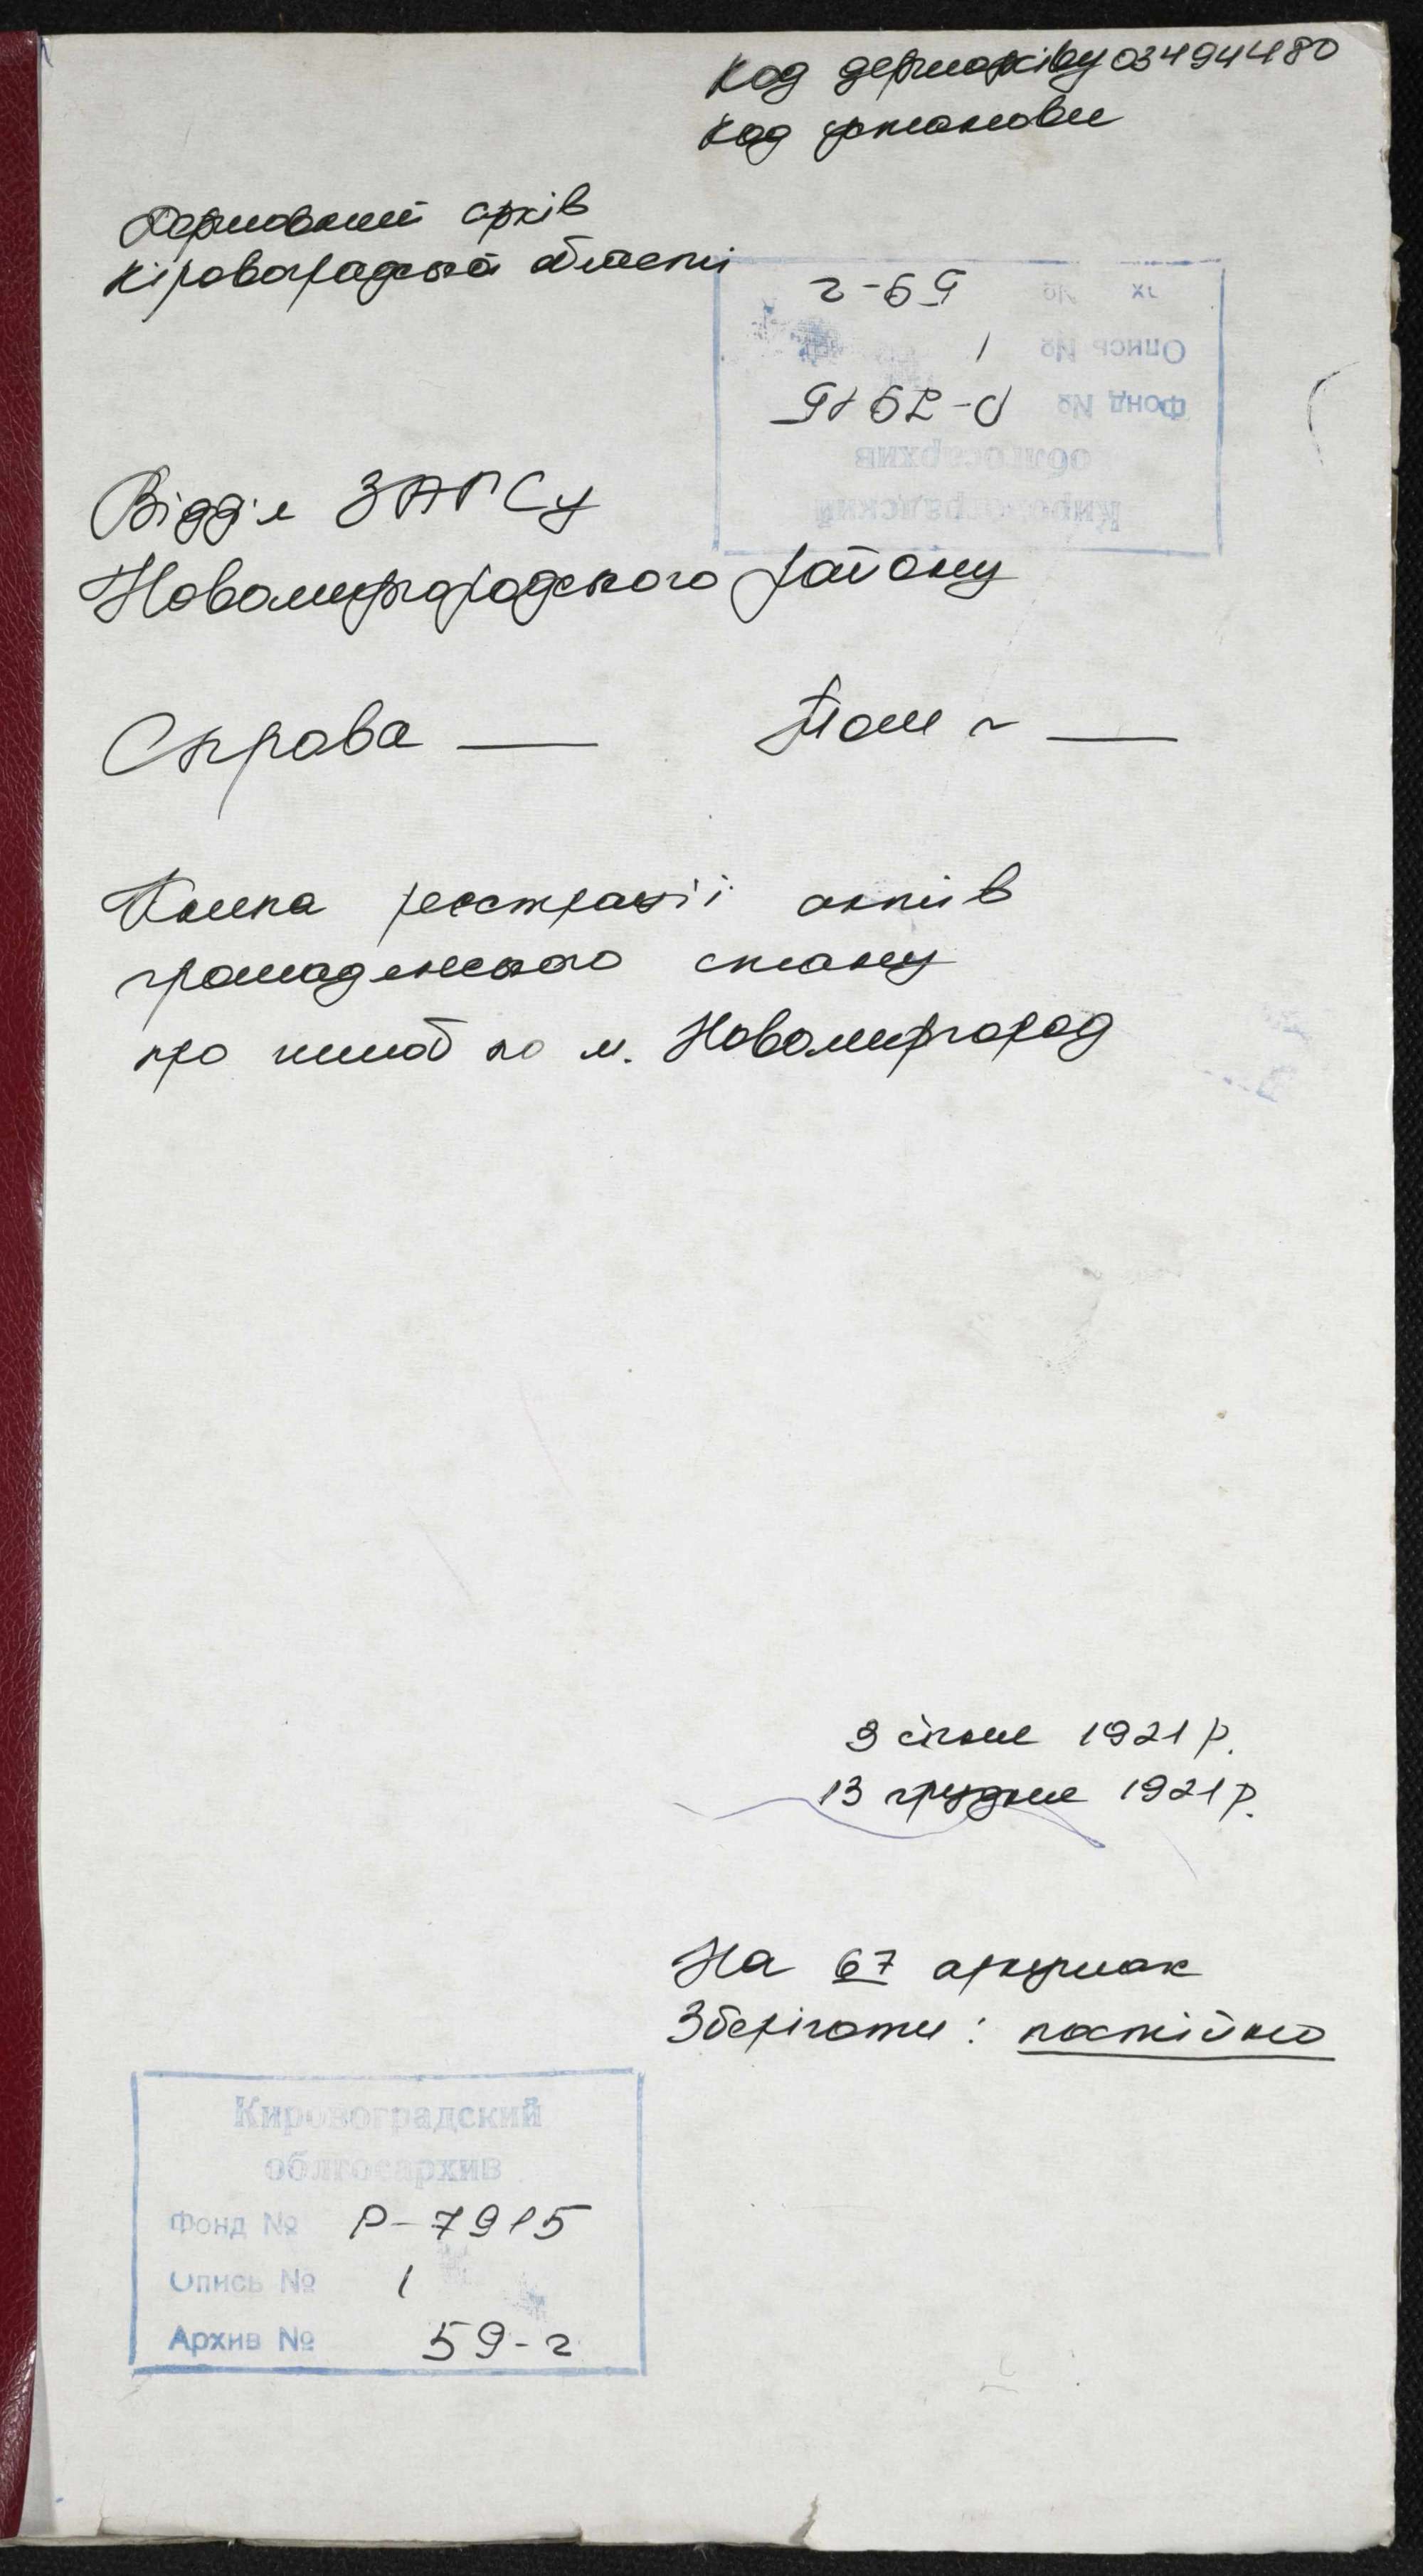 Код держархіву 03494480
Код установи
Державний архів
Кіровоградської області
59-г
Опись № 1
Фонд № Р-7915
облгосархив
Кировоградский
Відділ ЗАГСу
Новомиргородського району
Справа — Том № —
Книга реєстрації актів
громадянського стану
про шлюб по м. Новомиргород
9 січня 1921 р.
13 грудня 1921 р.
На 67 аркушах
Зберігати: постійно
Кировоградский
облгосархив
Фонд № Р-7915
Опись № 1
Архив № 59-г